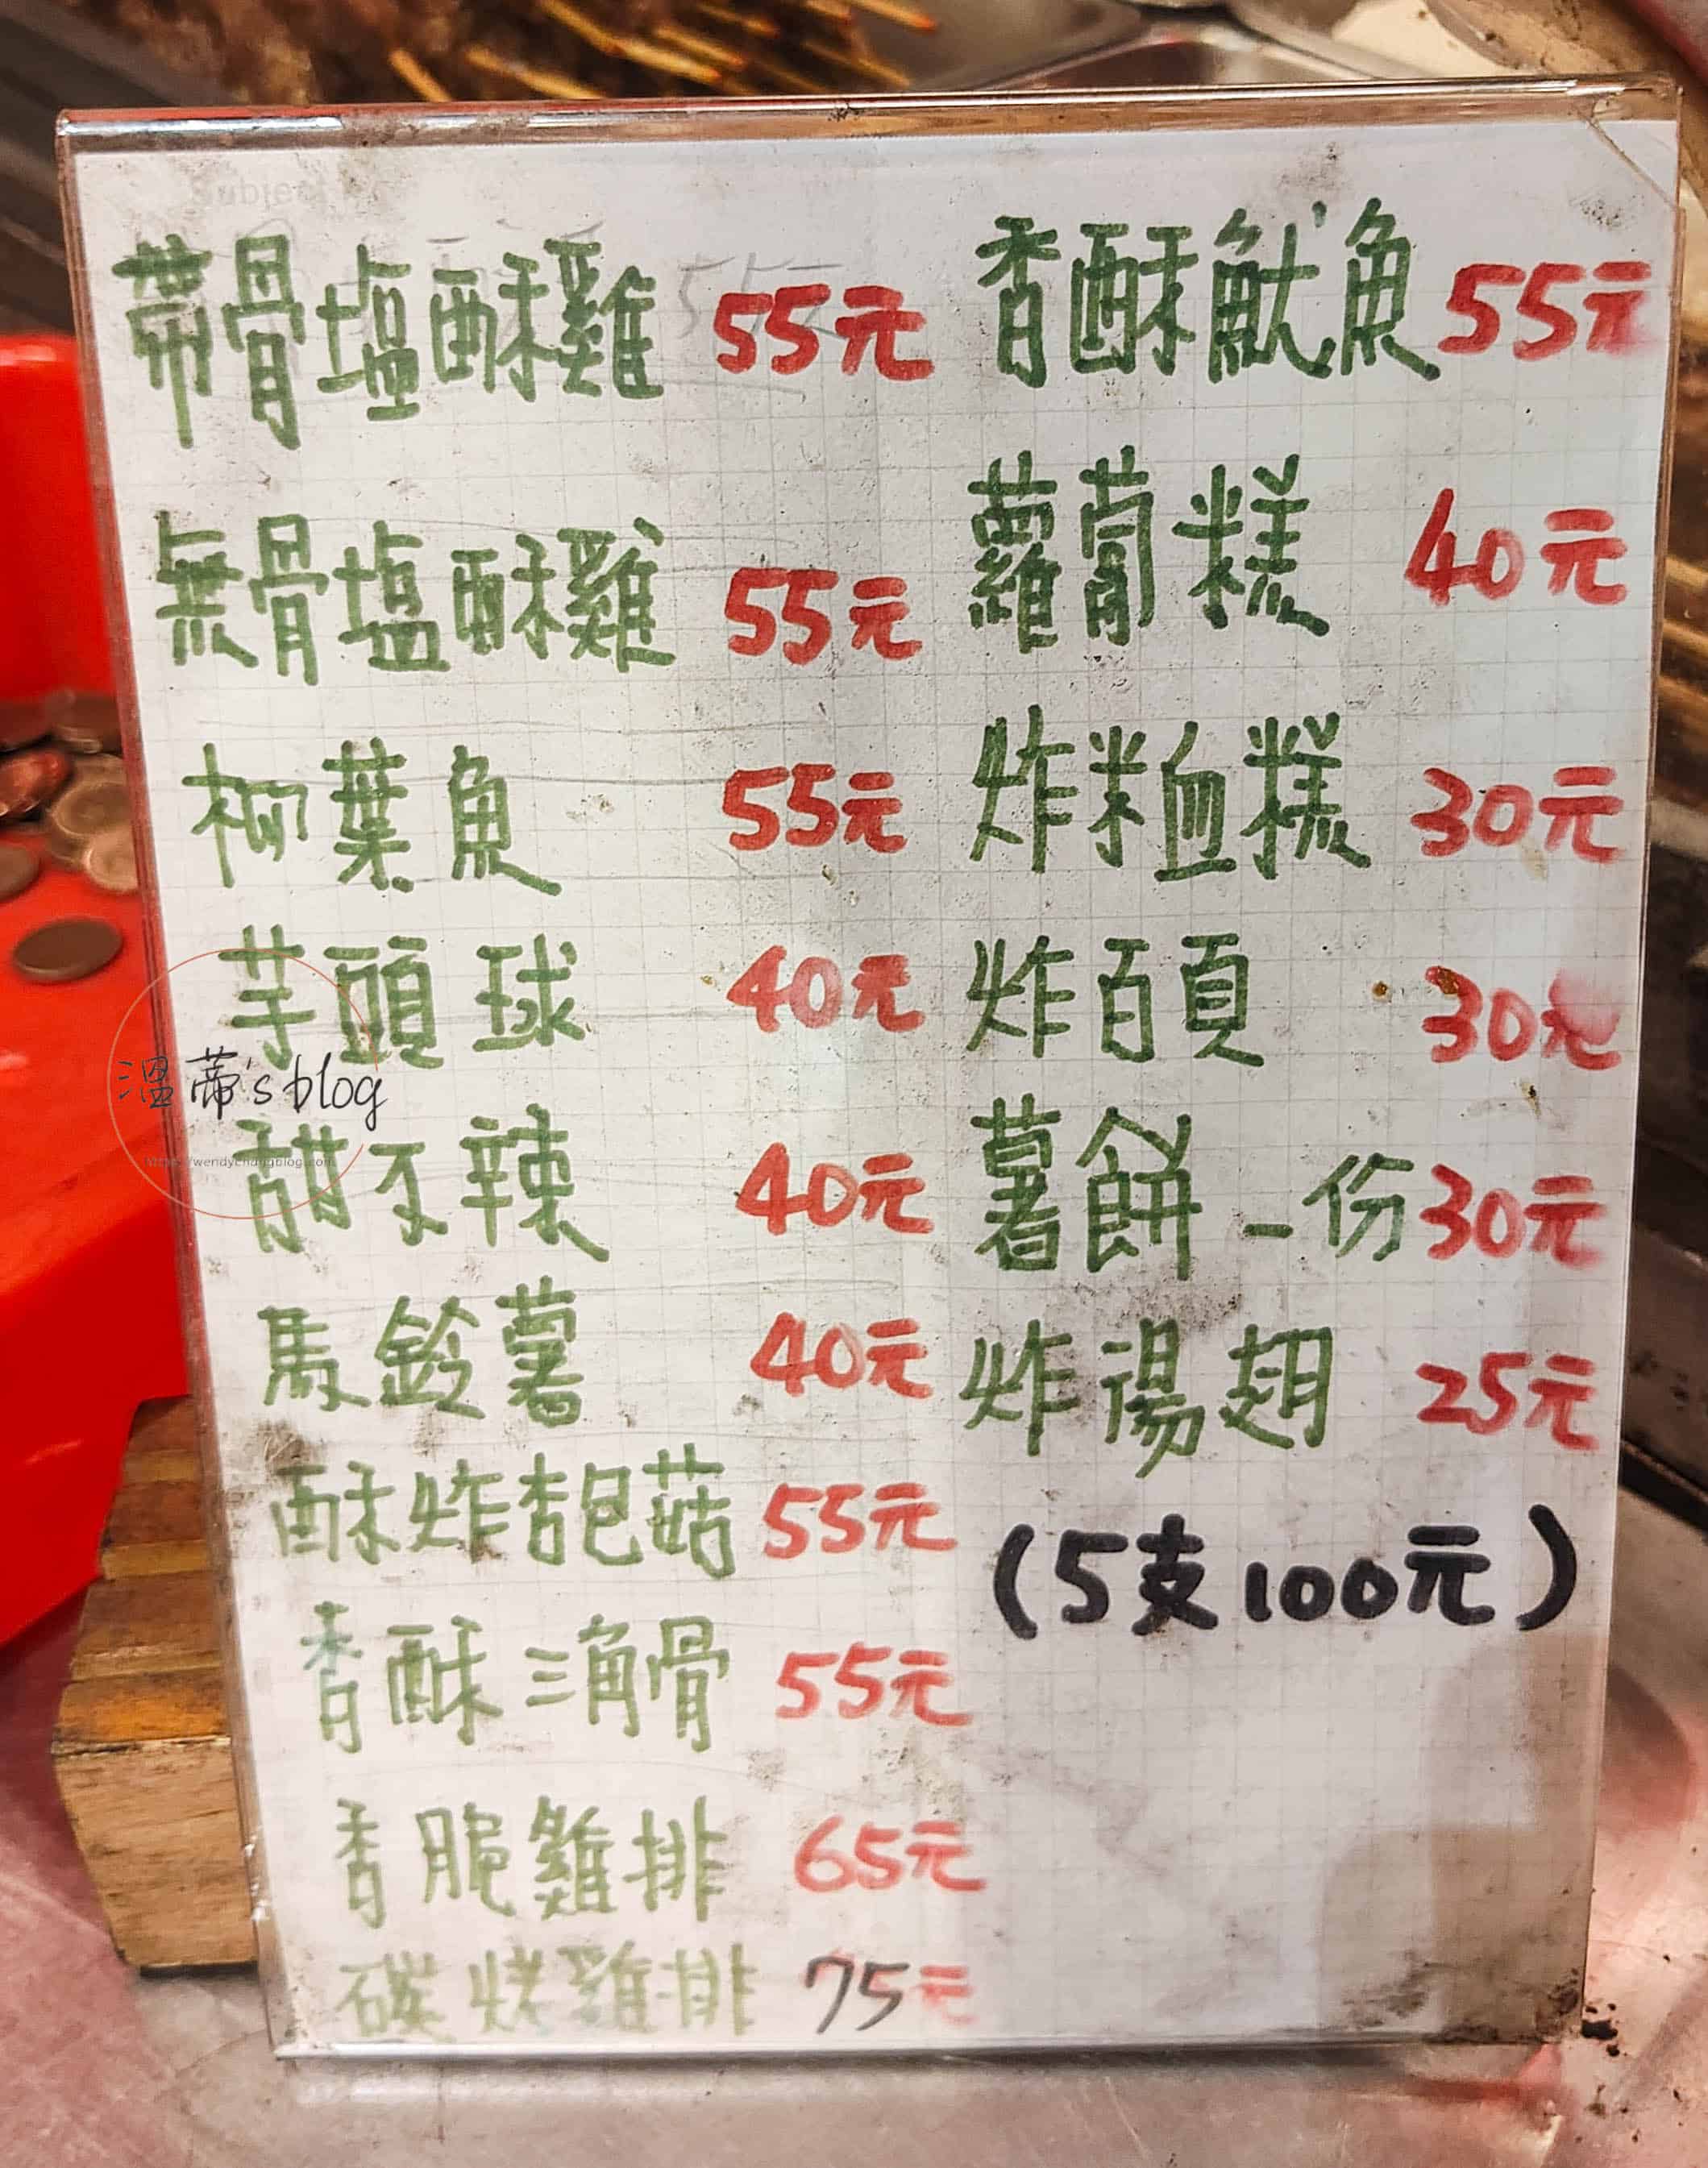 Subject
帶骨塩酥雞 55元
無骨塩酥雞 55元
柳葉魚 55元
芋頭球 40元
甜不辣 40元
馬鈴薯 40元
酥炸杏鮑菇 55元
香酥三角骨 55元
香脆雞排 65元
碳烤雞排 75元
香酥魷魚 55元
蘿蔔糕 40元
炸米血糕 30元
炸百頁 30元
薯餅一份 30元
炸湯翅 25元
(5支100元)
溫蒂's blog
https://wendychangblog.com